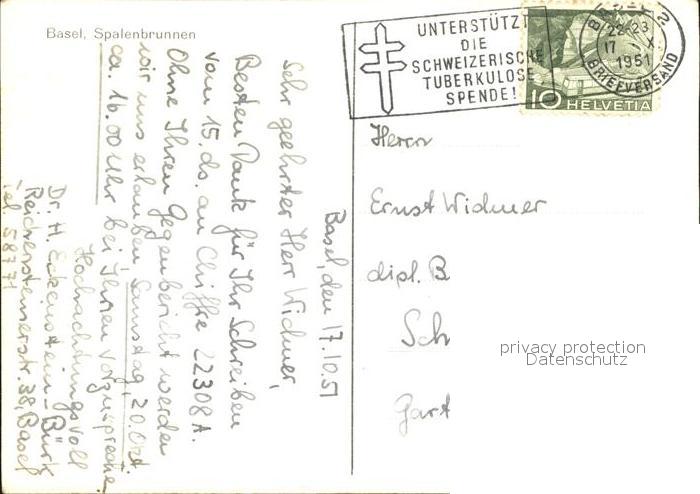 Basel, Spalenbrunnen
UNTERSTÜTZT
DIE
SCHWEIZERISCHE
TUBERKULOSE
SPENDE!
22-23
17. X.
1951
BRIEFVERSAND
10 HELVETIA
Basel, den 17.10.51
Sehr geehrter Herr Widmer,
Besten Dank für Ihr Schreiben
vom 15. ds. an Chiffre 22308 A.
Ohne Ihren Gegenbericht werden
wir uns erlauben, Samstag, 20. Okt.
ca. 16.00 Uhr bei Ihnen vorzusprechen.
Hochachtungsvoll
Dr. H. Eckenstein-Bürk
Reichensteinerstr. 38, Basel
Tel. 58771
Herrn
Ernst Widmer
dipl. B
Sch
Gart
privacy protection
Datenschutz